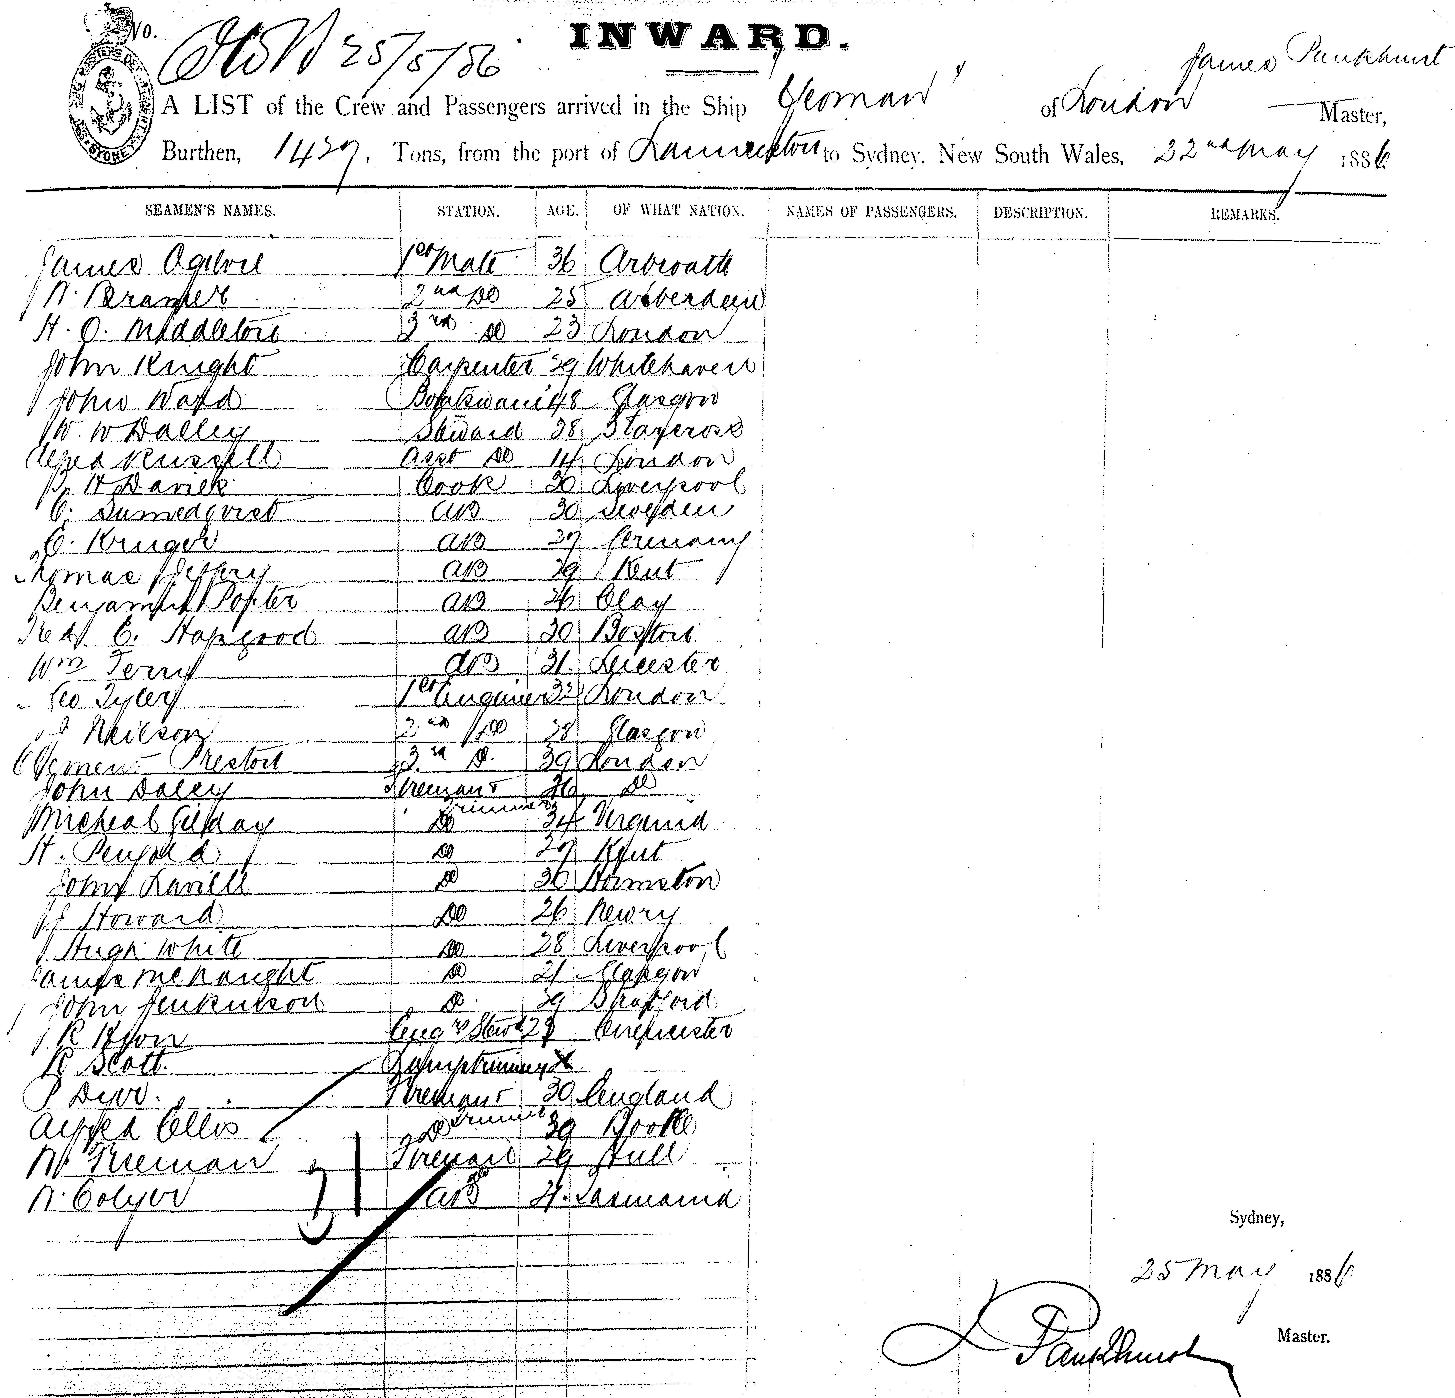 No.
25/5/86
INWARD.
James Pankhurst
A LIST of the Crew and Passengers arrived in the Ship "Yeoman" of London Master,
Burthen, 1429. Tons, from the port of Launceston to Sydney, New South Wales, 22nd May 1886
SEAMEN'S NAMES. STATION. AGE. OF WHAT NATION. NAMES OF PASSENGERS. DESCRIPTION. REMARKS.
James Ogilvie 1st Mate 36 Arbroath
W. Bramer 2nd Do 25 Aberdeen
H. O. Middleton 3rd Do 23 London
John Knight Carpenter 29 Whitehaven
John Ward Boatswain 48 Glasgow
W. W Dalley Steward 28 Starcross
Alfred Russell Asst Do 14 London
H Davies Cook 30 Liverpool
C. AB 30 Sweden
C. Kruger AB 27 Germany
Thomas Jeffry AB 29 Kent
Benjamin Porter AB 26 Clay
Fred C. Hapgood AB 30 Boston
Wm Terry AB 31. Leicester
Geo Tyler 1st Engineer 32 London
J Neilson 2nd Do 28 Glasgow
Clement Preston 3rd D. 39 London
John Daley Fireman & Trimmer 36 Do
Micheal Gilday Do 34 Virginia
H. Penfold Do 27 Kent
John Lavill Do 30
J Howard Do 26 Newry
Hugh White Do 28 Liverpool
James McNaught Do 21 Glasgow
John Jenkinson D. 29 Stratford
R Kyon Engrs Stewd 29 Cirencester
R Scott. Lamptrimmer X
P Dyer. Fireman & Trimmer 30 England
Alfred Ellis D 39 Bootle
W. Freeman Fireman 29 Hull
W. Colyer AB 21. Tasmania
Sydney,
25 May 1886
J Pankhurst
Master.